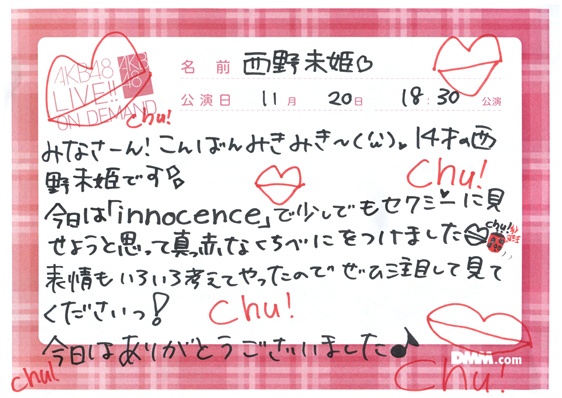 AKB48
LIVE!!
ON DEMAND
AKB
48
chu!
名前 西野未姫
公演日 11月 20日 18:30 公演
みなさーん!こんばんみきみき〜(ω)♥14才の西
野未姫です
Chu!
今日は「innocence」で少しでもセクシーに見
せようと思って真っ赤なくちべにをつけました
chu!
表情もいろいろ考えてやったのでぜひ注目して見て
くださいっ!
Chu!
今日はありがとうございました♪
DMM.com
chu!
Chu!